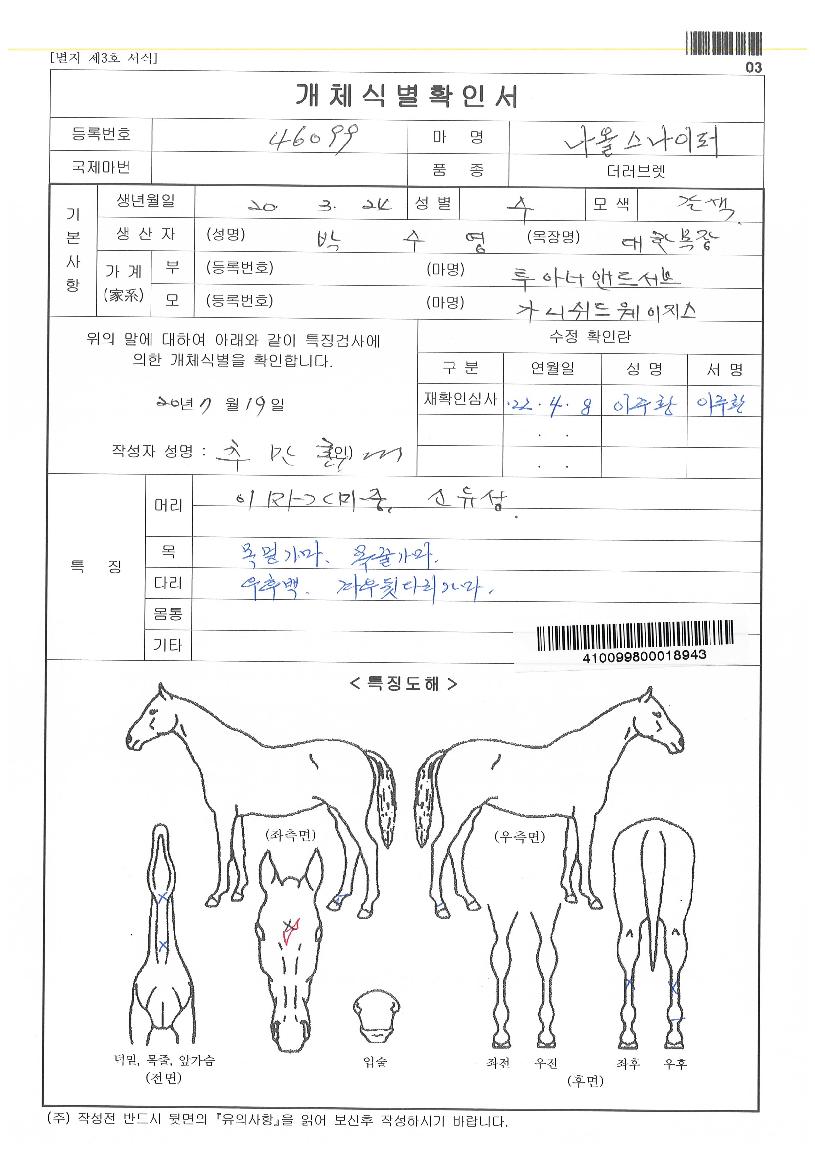 [별지 제3호 서식]
03
개체식별확인서
등록번호 46099 마 명 나올스나이퍼
국제마번 품 종 더러브렛
기본사항
생년월일 20. 3. 24 성별 수 모색 갈색.
생산자 (성명) 박 수 영 (목장명) 대한목장
가계 (家系) 부 (등록번호) (마명) 투아너앤드서브
모 (등록번호) (마명)
위의 말에 대하여 아래와 같이 특징검사에
의한 개체식별을 확인합니다.
20년 7 월 19 일
작성자 성명 : 추 만 (인)
수정 확인란
구 분 연월일 성 명 서 명
재확인심사 22. 4. 8 이주환 이주환
특 징
머리
목 목밑가마. 목끝가마.
다리 우후백. 좌우뒷다리가마.
몸통
기타
410099800018943
< 특징도해 >
(좌측면) (우측면)
턱밑, 목줄, 앞가슴
(전면)
입술
좌전 우진 좌후 우후
(후면)
(주) 작성전 반드시 뒷면의 『유의사항』을 읽어 보신후 작성하시기 바랍니다.